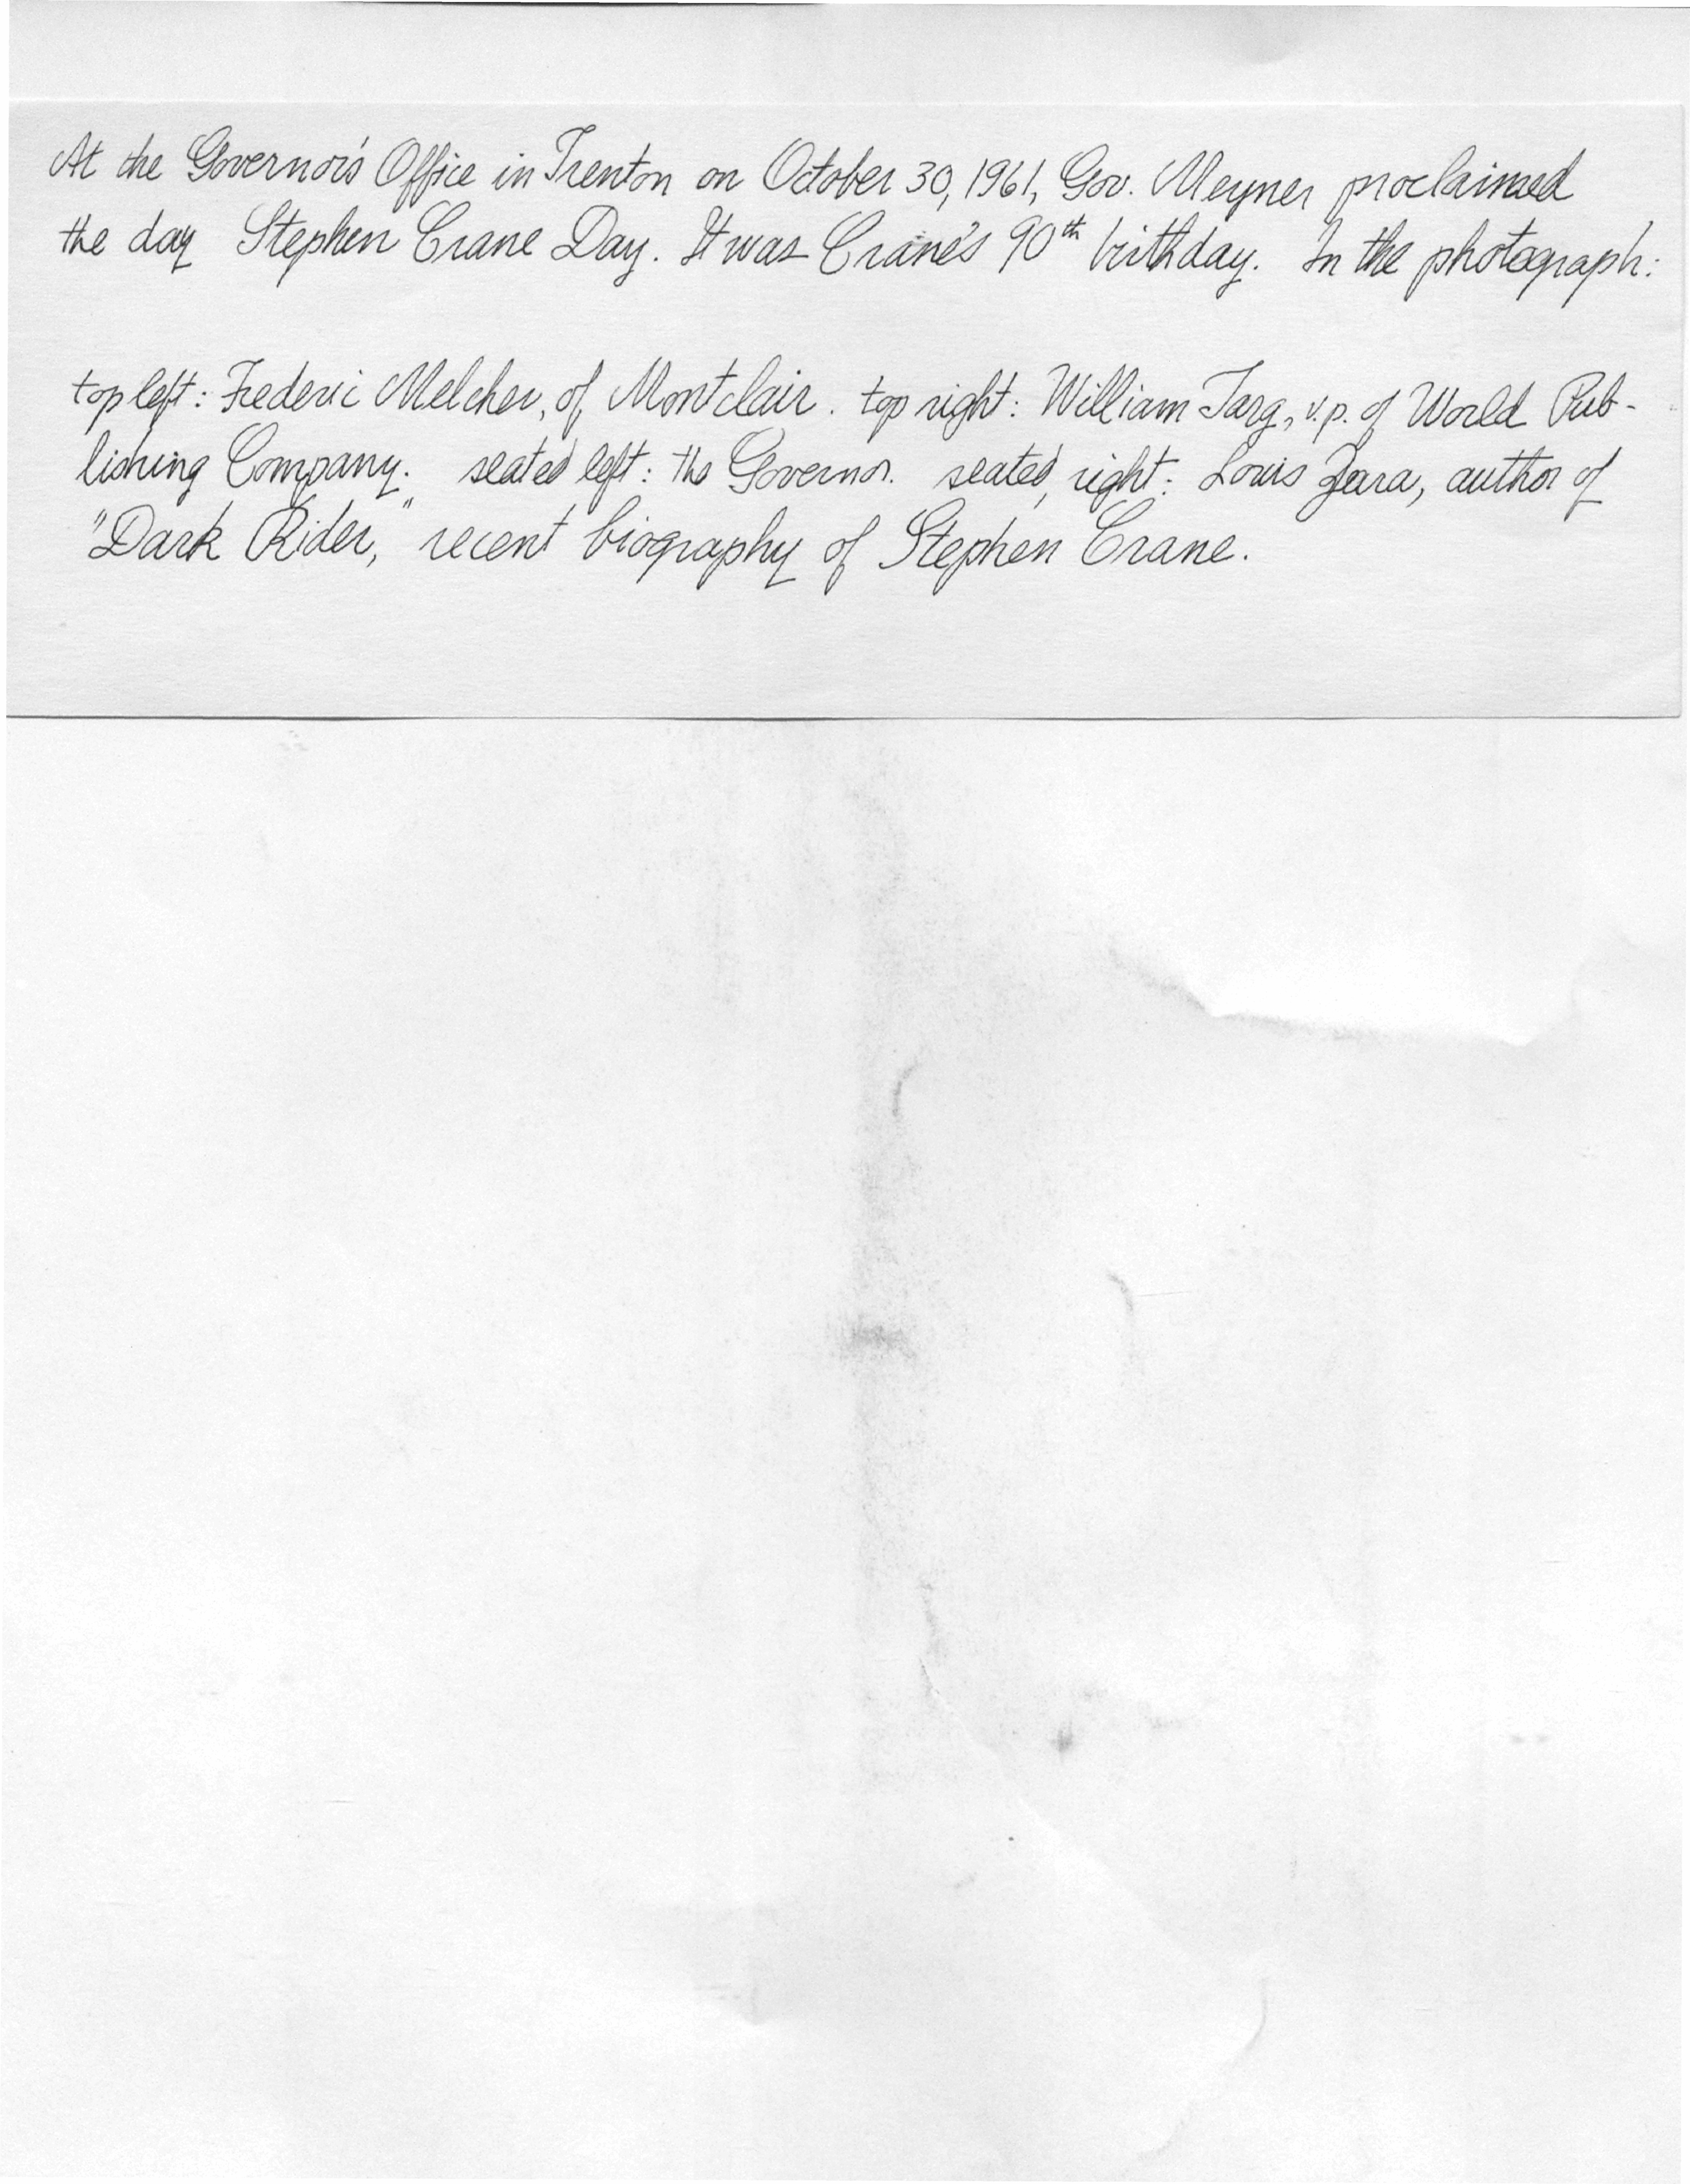 At the Governor's Office in Trenton on October 30, 1961, Gov. Meyner proclaimed
the day Stephen Crane Day. It was Crane's 90th birthday. In the photograph:
top left: Frederic Melcher, of Montclair. top right: William Targ, v.p. of World Pub-
lishing Company. seated left: the Governor. seated, right: Louis Zara, author of
"Dark Rider," recent biography of Stephen Crane.